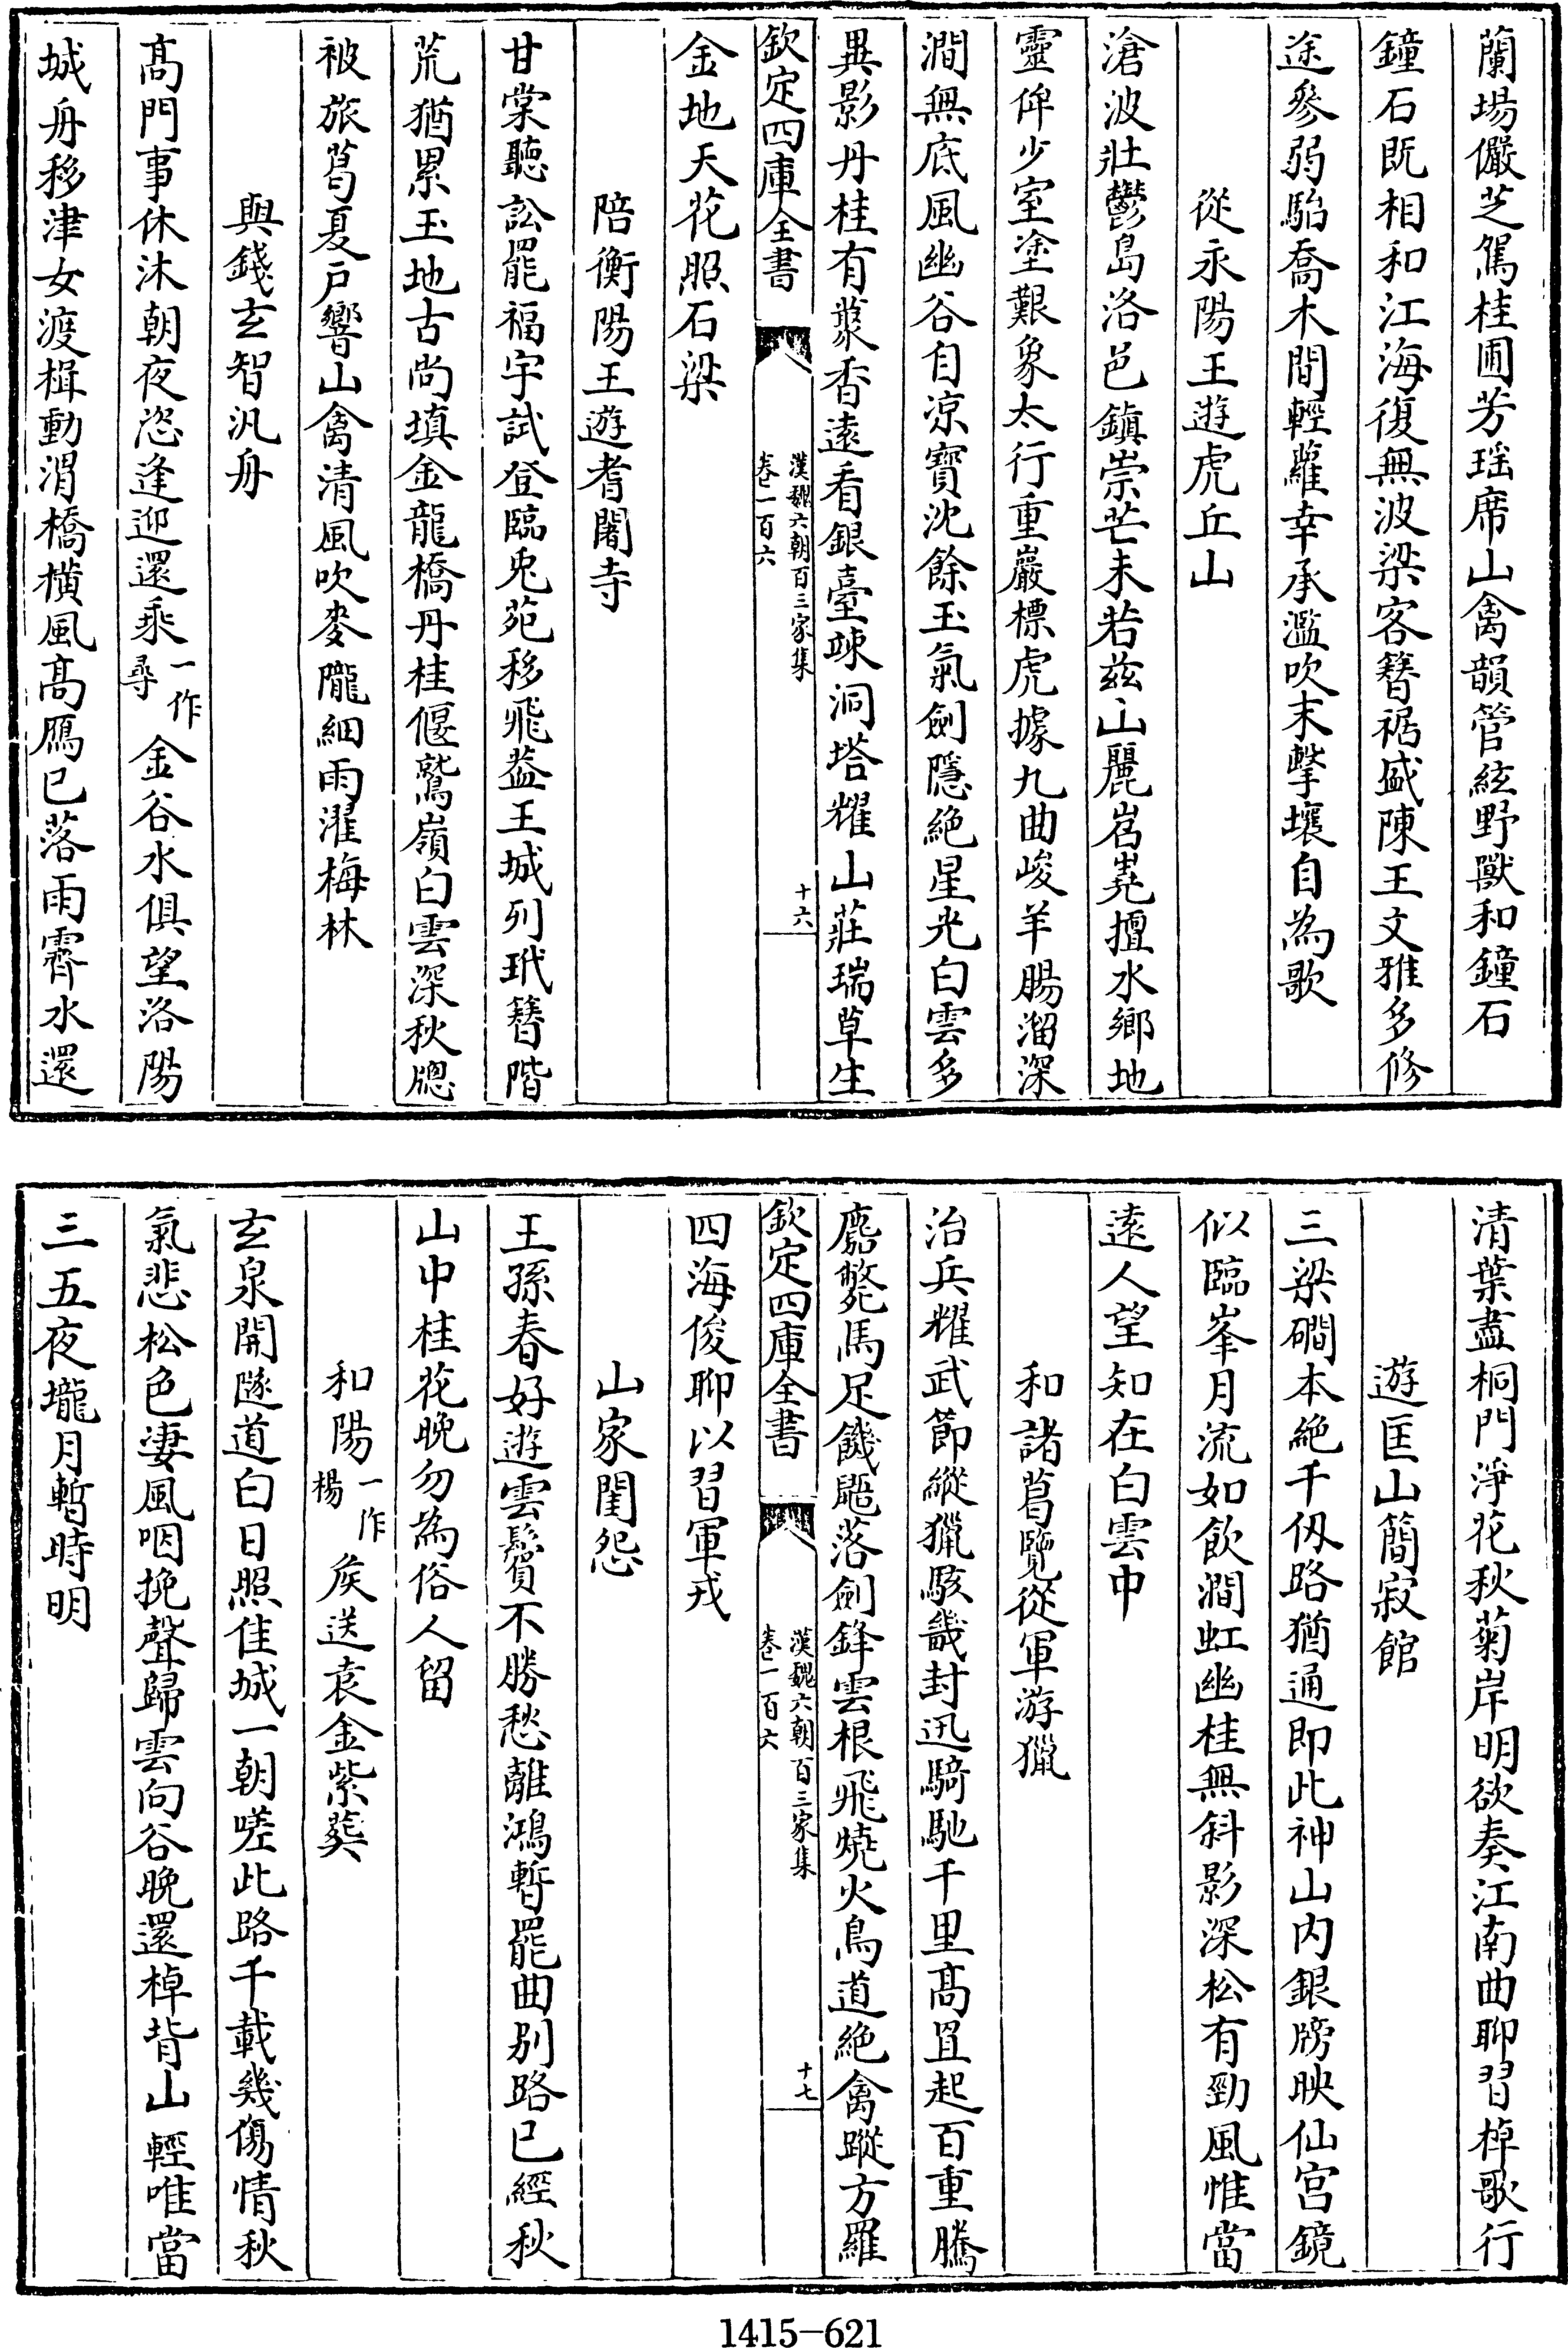 蘭場儼芝駕桂圃芳瑶席山禽韻管絃野獸和鐘石
鐘石既相和江海復無波梁客簪裾盛陳王文雅多修
途參弱駘喬木間輕蘿幸承濫吹末擊壤自為歌
從永陽王遊虎丘山
滄波壯鬱島洛邑鎮崇芒未若兹山麗岧嶤擅水鄉地
靈侔少室塗艱象太行重巖標虎據九曲峻羊腸溜深
澗無底風幽谷自凉寶沈餘玉氣劍隱絶星光白雲多
異影丹桂有藂香遠看銀臺竦洞塔耀山莊瑞草生
欽定四庫全書
漢魏六朝百三家集
卷一百六
十六
金地天花照石梁
陪衡陽王遊耆闍寺
甘棠聽訟罷福宇試登臨兎苑移飛葢王城列玳簪階
荒猶累玉地古尚填金龍橋丹桂偃鷲嶺白雲深秋牕
被旅葛夏戸響山禽清風吹麥隴細雨濯梅林
與錢玄智汎舟
髙門事休沐朝夜恣逢迎還乘一作尋金谷水俱望洛陽
城舟移津女渡楫動渭橋横風髙鴈已落雨霽水還
清葉盡桐門淨花秋菊岸明欲奏江南曲聊習棹歌行
遊匡山簡寂館
三梁磵本絶千仭路猶通即此神山内銀牓映仙宫鏡
似臨峯月流如飲澗虹幽桂無斜影深松有勁風惟當
遠人望知在白雲中
和諸葛覽從軍游獵
治兵耀武節縱獵駭畿封迅騎馳千里髙罝起百重騰
麏斃馬足饑鼯落劍鋒雲根飛燒火鳥道絶禽蹤方羅
欽定四庫全書
漢魏六朝百三家集
卷一百六
十七
四海俊聊以習軍戎
山家閨怨
王孫春好遊雲鬢不勝愁離鴻暫罷曲别路已經秋
山中桂花晚勿為俗人留
和陽一作楊矦送袁金紫葬
玄泉開隧道白日照佳城一朝嗟此路千載幾傷情秋
氣悲松色凄風咽挽聲歸雲向谷晚還棹背山輕唯當
三五夜壠月暫時明
1415-621